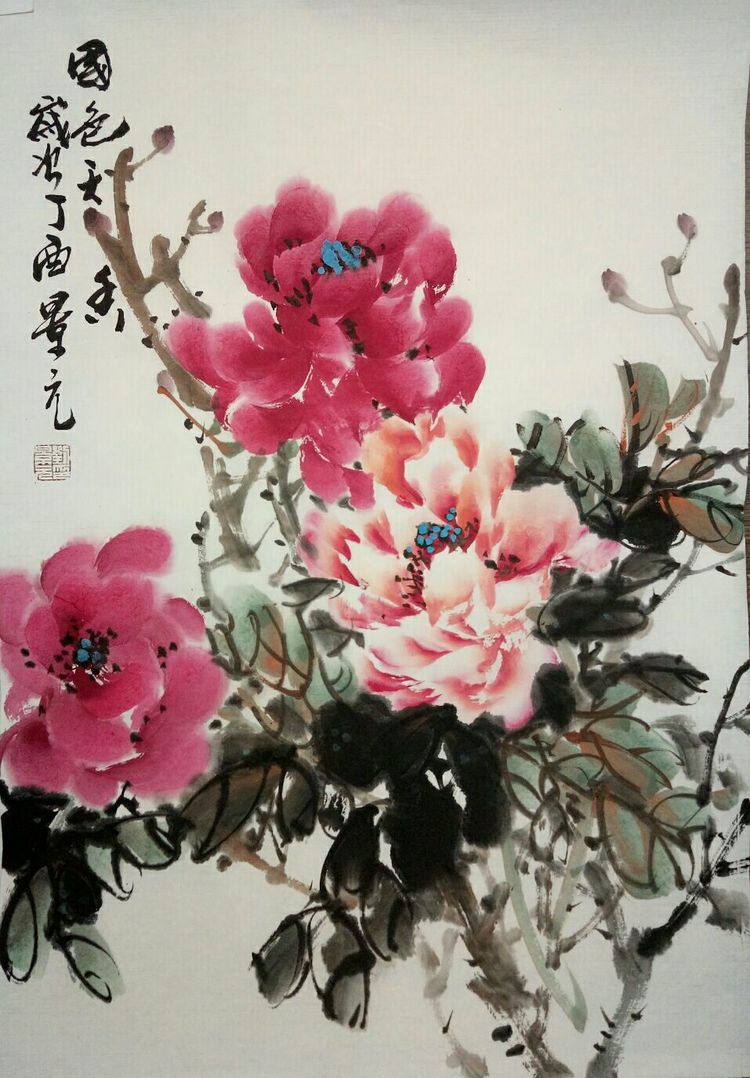 國色天香
歲次丁酉景元